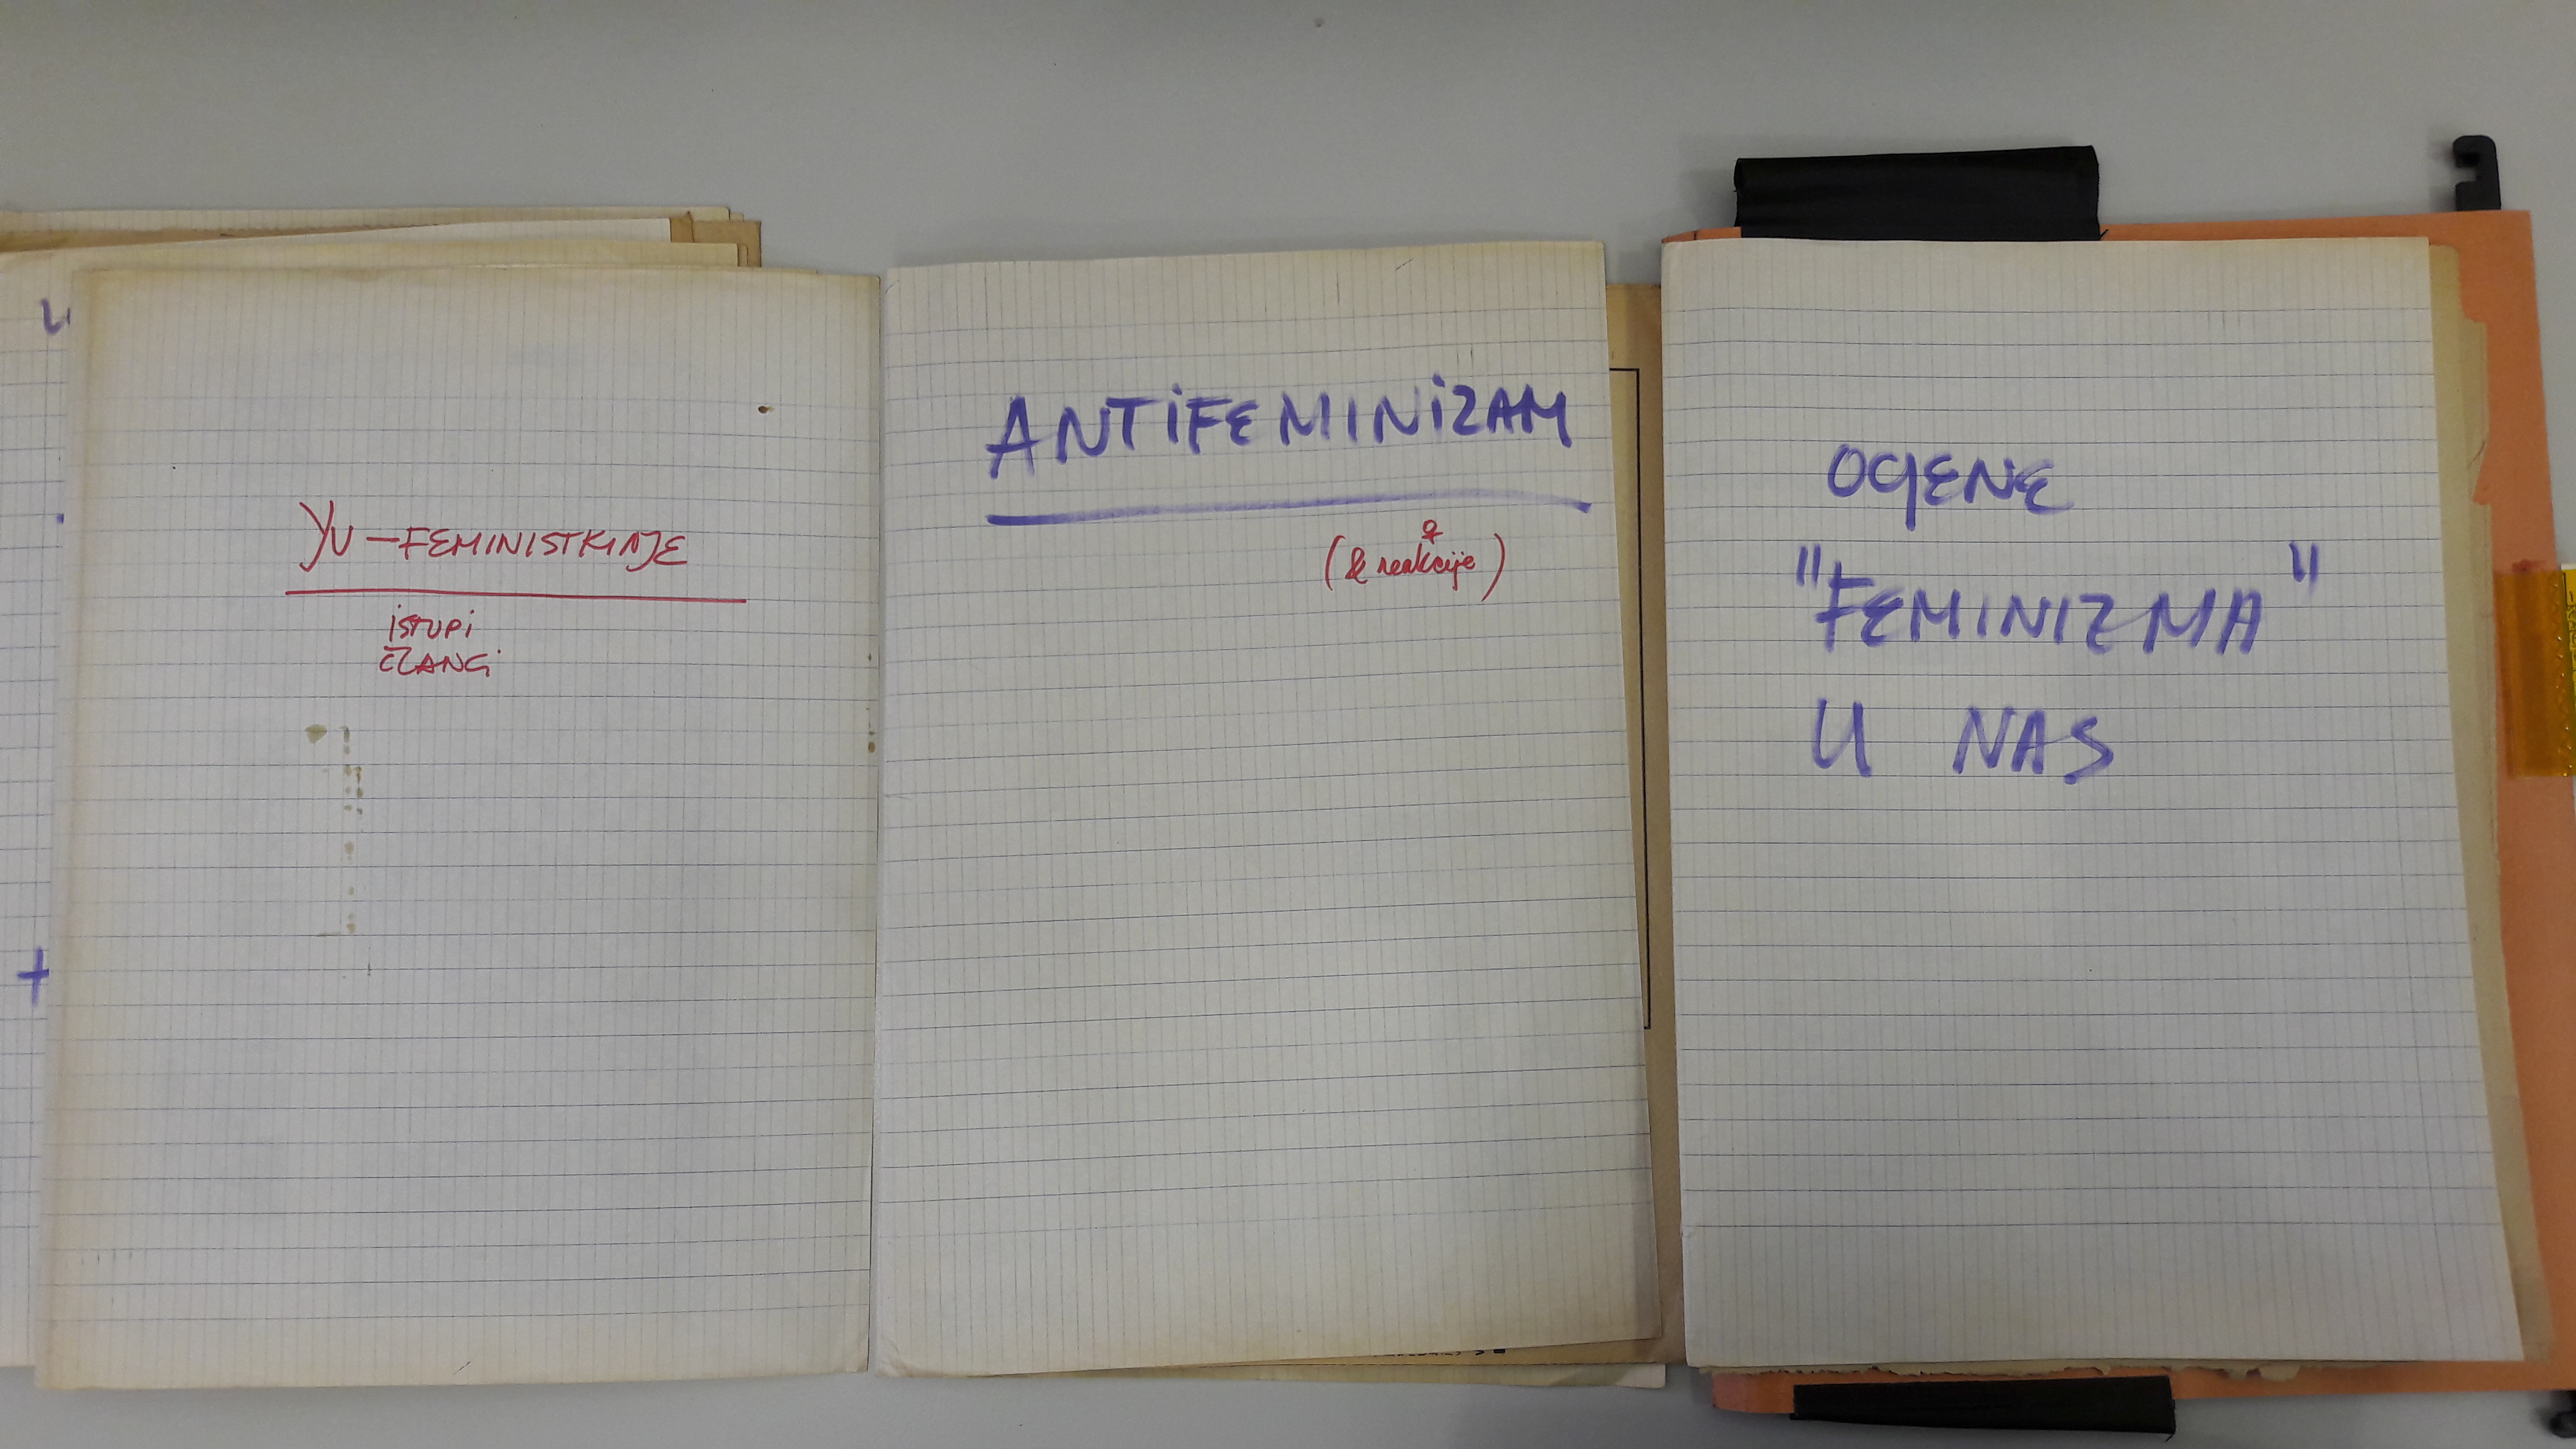 YU – FEMINISTKINJE
iSTUPi
ČLANCi
ANTiFEMINiZAM
♀
(& reakcije)
OCJENE
"FEMINIZMA"
U NAS